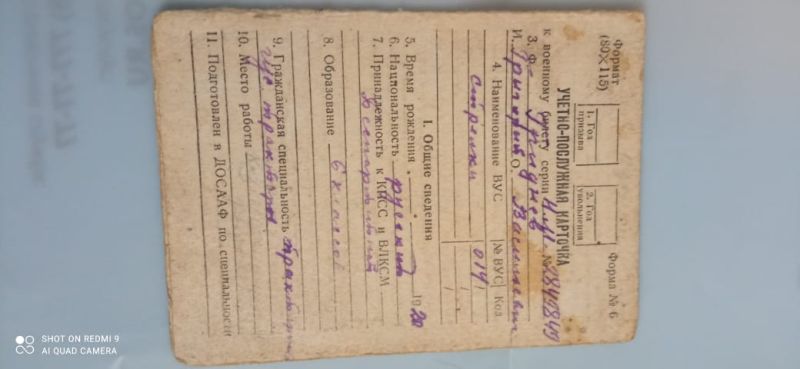 Формат
(80×115)
1. Год
призыва
2. Год
увольнения
Форма № 6
УЧЕТНО-ПОСЛУЖНАЯ КАРТОЧКА
к военному билету серии №
3. Ф.
И. Григорий О. Васильевич
4. Наименование ВУС
№ ВУС
Код
стрелки
014
I. Общие сведения
5. Время рождения 1920
6. Национальность русский
7. Принадлежность к КПСС и ВЛКСМ
беспартийный
8. Образование 6 классов
9. Гражданская специальность тракторист
гус. тракторов
10. Место работы
11. Подготовлен в ДОСААФ по специальности
SHOT ON REDMI 9
AI QUAD CAMERA